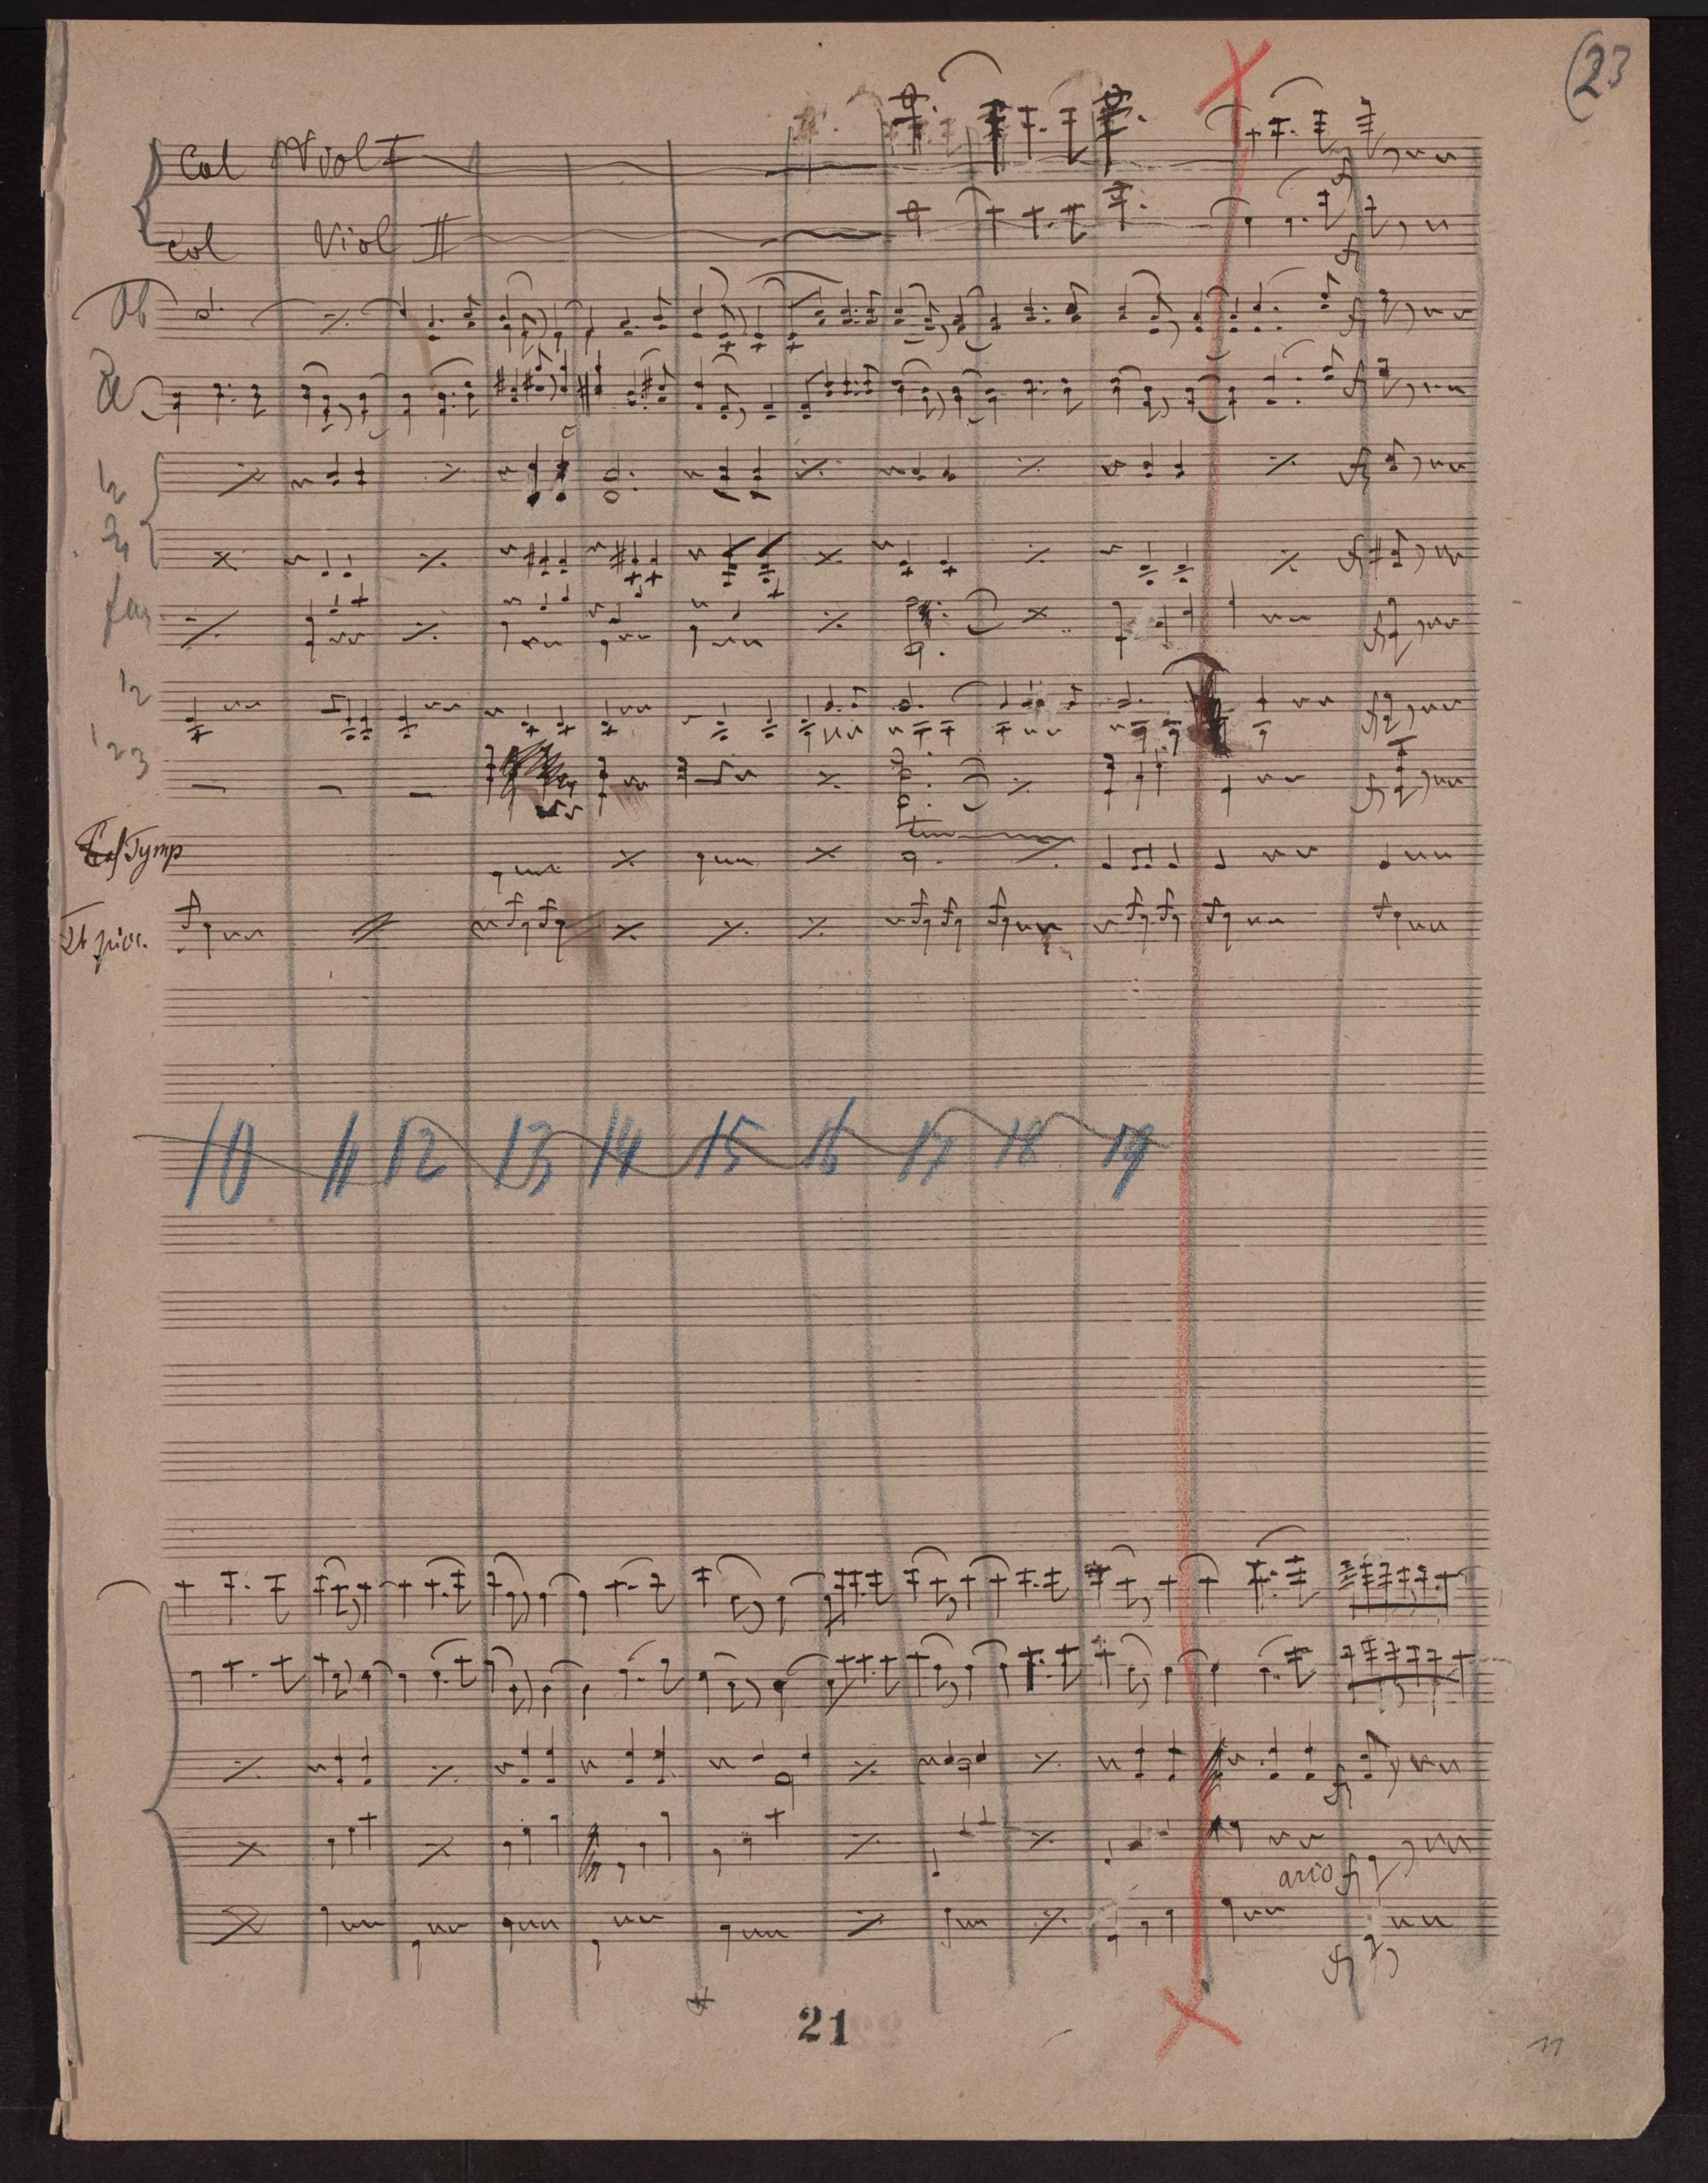 (23
Col Viol I
col Viol II
Ob
12
34
12
123
Tymp
10 11 12 13 14 15 16 17 18 19
arco
21